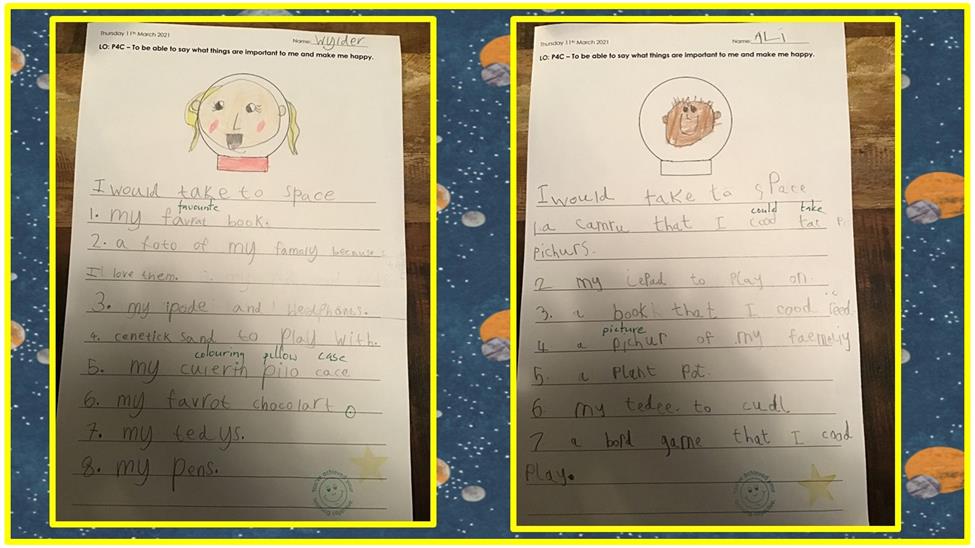 Thursday 11th March 2021
Name: Wylder
LO: P4C – To be able to say what things are important to me and make me happy.
I would take to space
favourite
1. my favrat book.
2. a foto of my famaly because
I love them.
3. my ipade and Hedphones.
4. cenetick sand to play with.
colouring pillow case
5. my culerin pilo cace
6. my favrot chocolart
7. my tedys.
8. my pens.
You've achieved your learning objective
Thursday 11th March 2021
Name: ALi
LO: P4C – To be able to say what things are important to me and make me happy.
I would take to space
could take
1 a camru that I cood tac
pichurs.
2 my iepad to play on.
3. a book that I cood reed
picture
4 a pichur of my faemeliy
5. a plant pot.
6 my tedee. to cudl
7 a bord game that I cood
play.